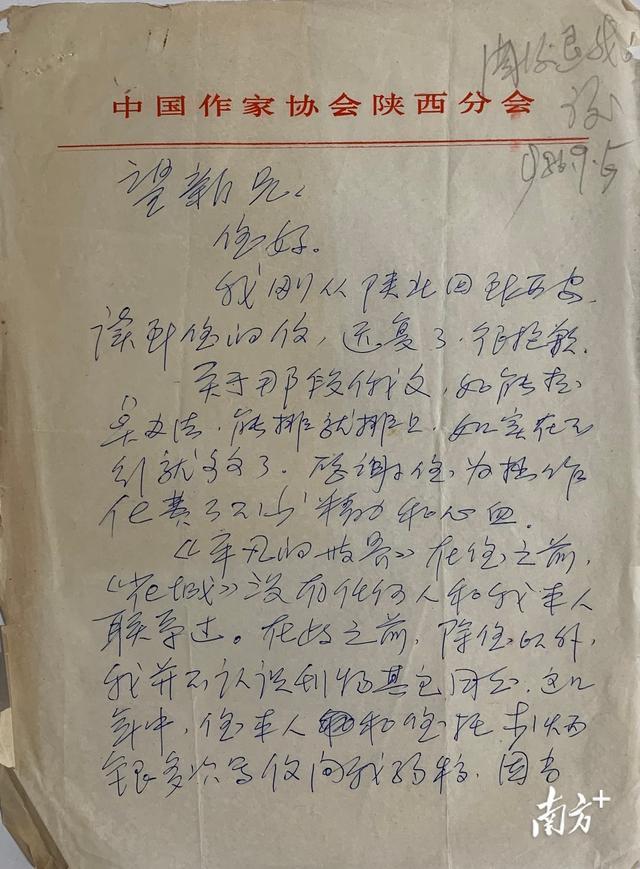 中国作家协会陕西分会
退我
谢
1986.9.5
望新兄:
您好。
我刚从陕北回到西安,
读到您的信,迟复了.很抱歉.
关于那段俄文,如能想
点办法,能排就排上,如实在不
行就算了。感谢您为拙作
化费了不少精力和心血.
《平凡的世界》在您之前,
《花城》没有任何人和我本人
联系过。在此之前,除您以外,
我并不认识刊物其它同志.这几
年中,您本人和您托李炳
银多次写信向我约稿.因为
南方+